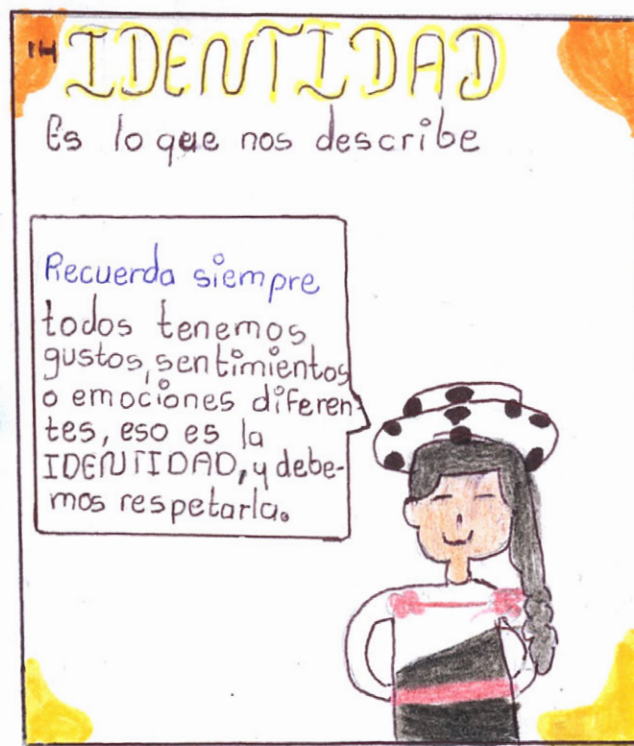 14 IDENTIDAD
Es lo que nos describe
Recuerda siempre
todos tenemos
gustos, sentimientos
o emociones diferen-
tes, eso es la
IDENTIDAD, y debe-
mos respetarla.